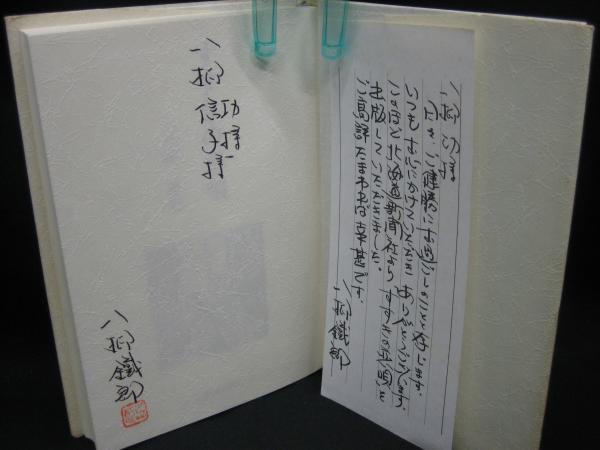 八柳 功様
信子様
八柳鐵郎
八柳功様
ご健勝にお過ごしのことと存じます。
いつもお心にかけていただき ありがとうございます。
このほど北海道新聞社より すすきの 哀唄を
出版していただきました。
ご高評たまわれば幸甚です。
八柳鐵郎